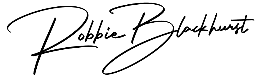 Robbie Blackhurst